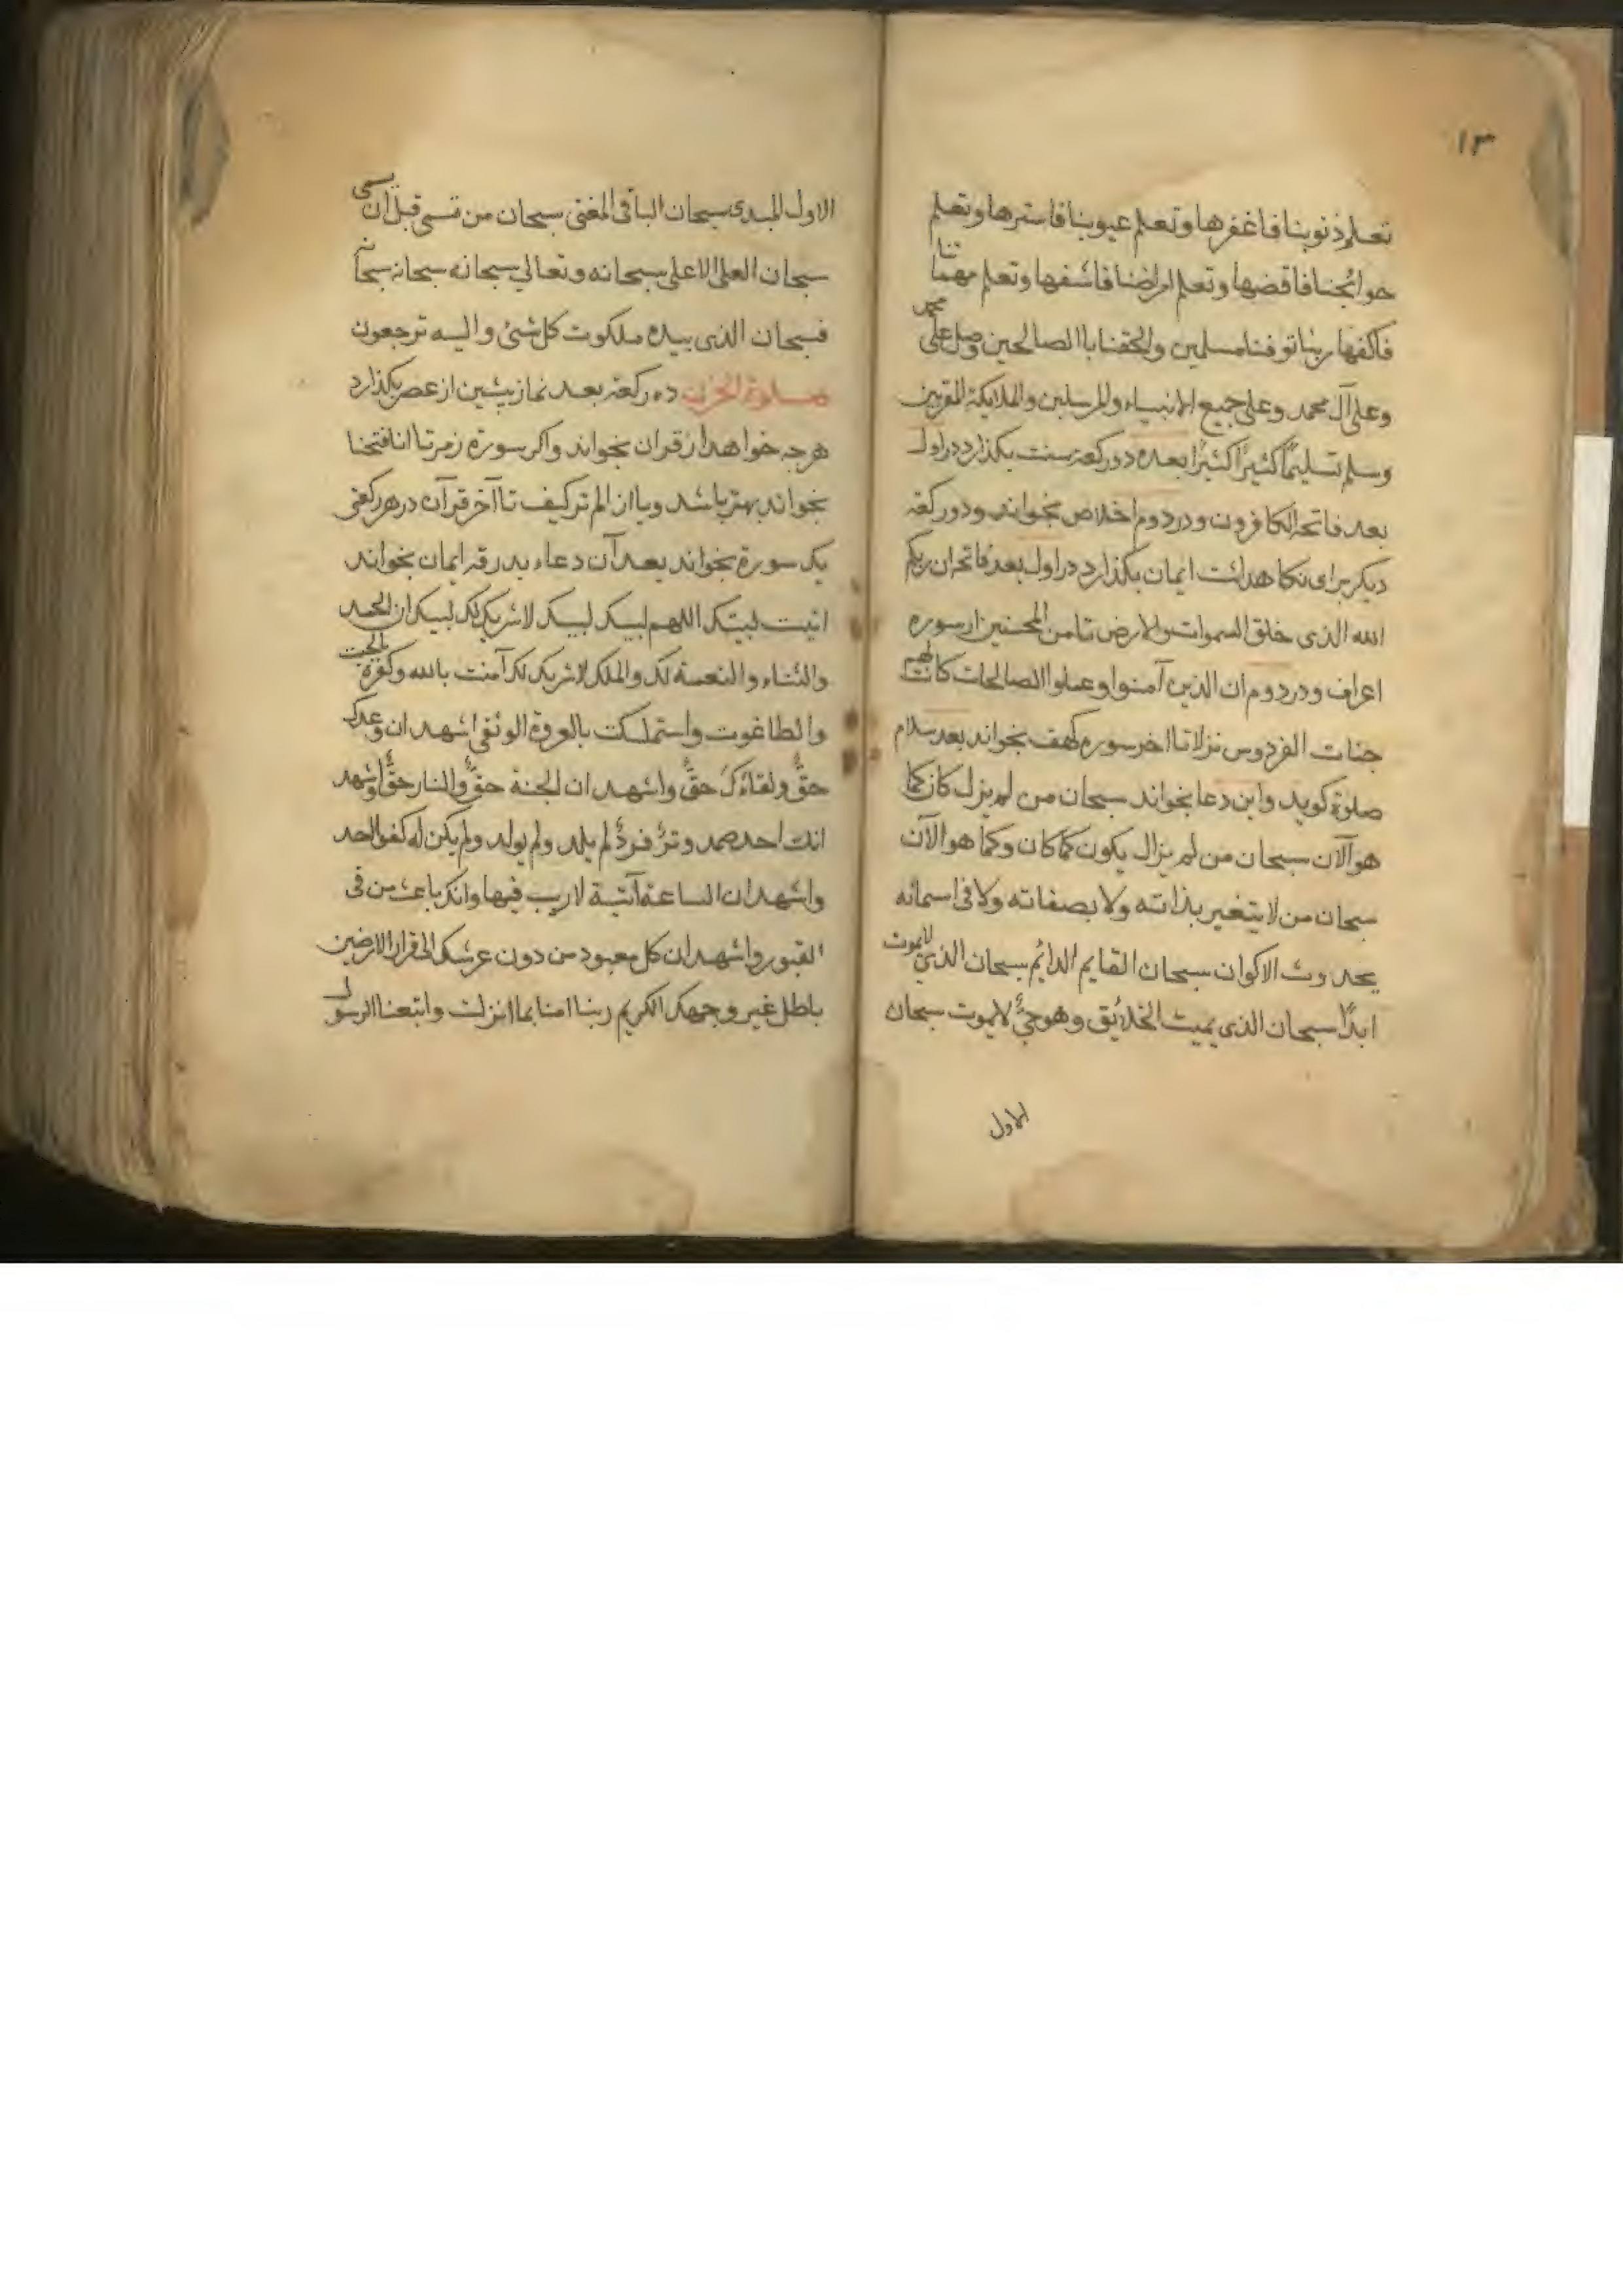 ١٣
تعلم ذنوبنا فاغفرها وتعلم عيوبنا فاسترها وتعلم
حوائجنا فاقضها وتعلم امراضنا فاشفها وتعلم مهماتنا
فاكفها ربنا توفنا مسلمين والحقنا باالصالحين وصل على محمد
وعلى آل محمد وعلى جميع الانبياء والمرسلين والملايكة المقربين
وسلم تسليمًا كثيرًا كثيرًا بعده دوركعة سنت بكذارد در اول
بعد فاتحه الكافرون ودر دوم اخلاص بخواند ودوركعة
ديكر براى نكاهداشت ايمان بكذارد در اول بعد فاتحه ان ربكم
الله الذى خلق السموات والارض تا من المحسنين از سوره
اعراف ودر دوم ان الذين آمنوا وعملوا الصالحات كانت لهم
جنات الفردوس نزلا تا اخر سوره كهف بخواند بعد سلام
صلوة كويد واين دعا بخواند سبحان من لم يزل كان كما
هو الآن سبحان من لم يزال يكون كما كان وكما هو الآن
سبحان من لا يتغير بذاته ولا بصفاته ولا فى اسمائه
بحدوث الاكوان سبحان القايم الدائم سبحان الذى لايموت
ابدًا سبحان الذى يميت الخلائق وهو حىٌّ لايموت سبحان
الاول
الاول المبدى سبحان الباقى المغنى سبحان من تسمى قبل ان يسمى
سبحان العلى الاعلى سبحانه وتعالى سبحانه سبحانه سبحانه
فسبحان الذى بيده ملكوت كل شئ واليه ترجعون
صلوة الحزن ده ركعة بعد نماز پيشين از عصر بكذارد
هرچه خواهد از قران بخواند واكر سورة زمر تا انا فتحنا
بخواند بهتر باشد ويا از الم تركيف تا آخر قرآن در هر ركعتى
يك سورة بخواند بعد آن دعاء بدرقه ايمان بخواند
اتيت لبيك اللهم لبيك لبيك لاشريك لك لبيك ان الحمد
والثناء والنعمة لك والملك لاشريك لك آمنت بالله وكفرة بالجبت
والطاغوت واستمسكت بالعروة الوثقى اشهد ان وعدك
حقٌّ ولقاءك حقٌّ واشهد ان الجنة حقٌّ والنار حقٌّ واشهد
انك احد صمد وترٌ فردٌ لم يلد ولم يولد ولم يكن له كفوا احد
واشهد ان الساعة آتية لاريب فيها وانك باعث من فى
القبور واشهد ان كل معبود من دون عرشك الى قرار الارضين
باطل غير وجهك الكريم ربنا امنا بما انزلت واتبعنا الرسول